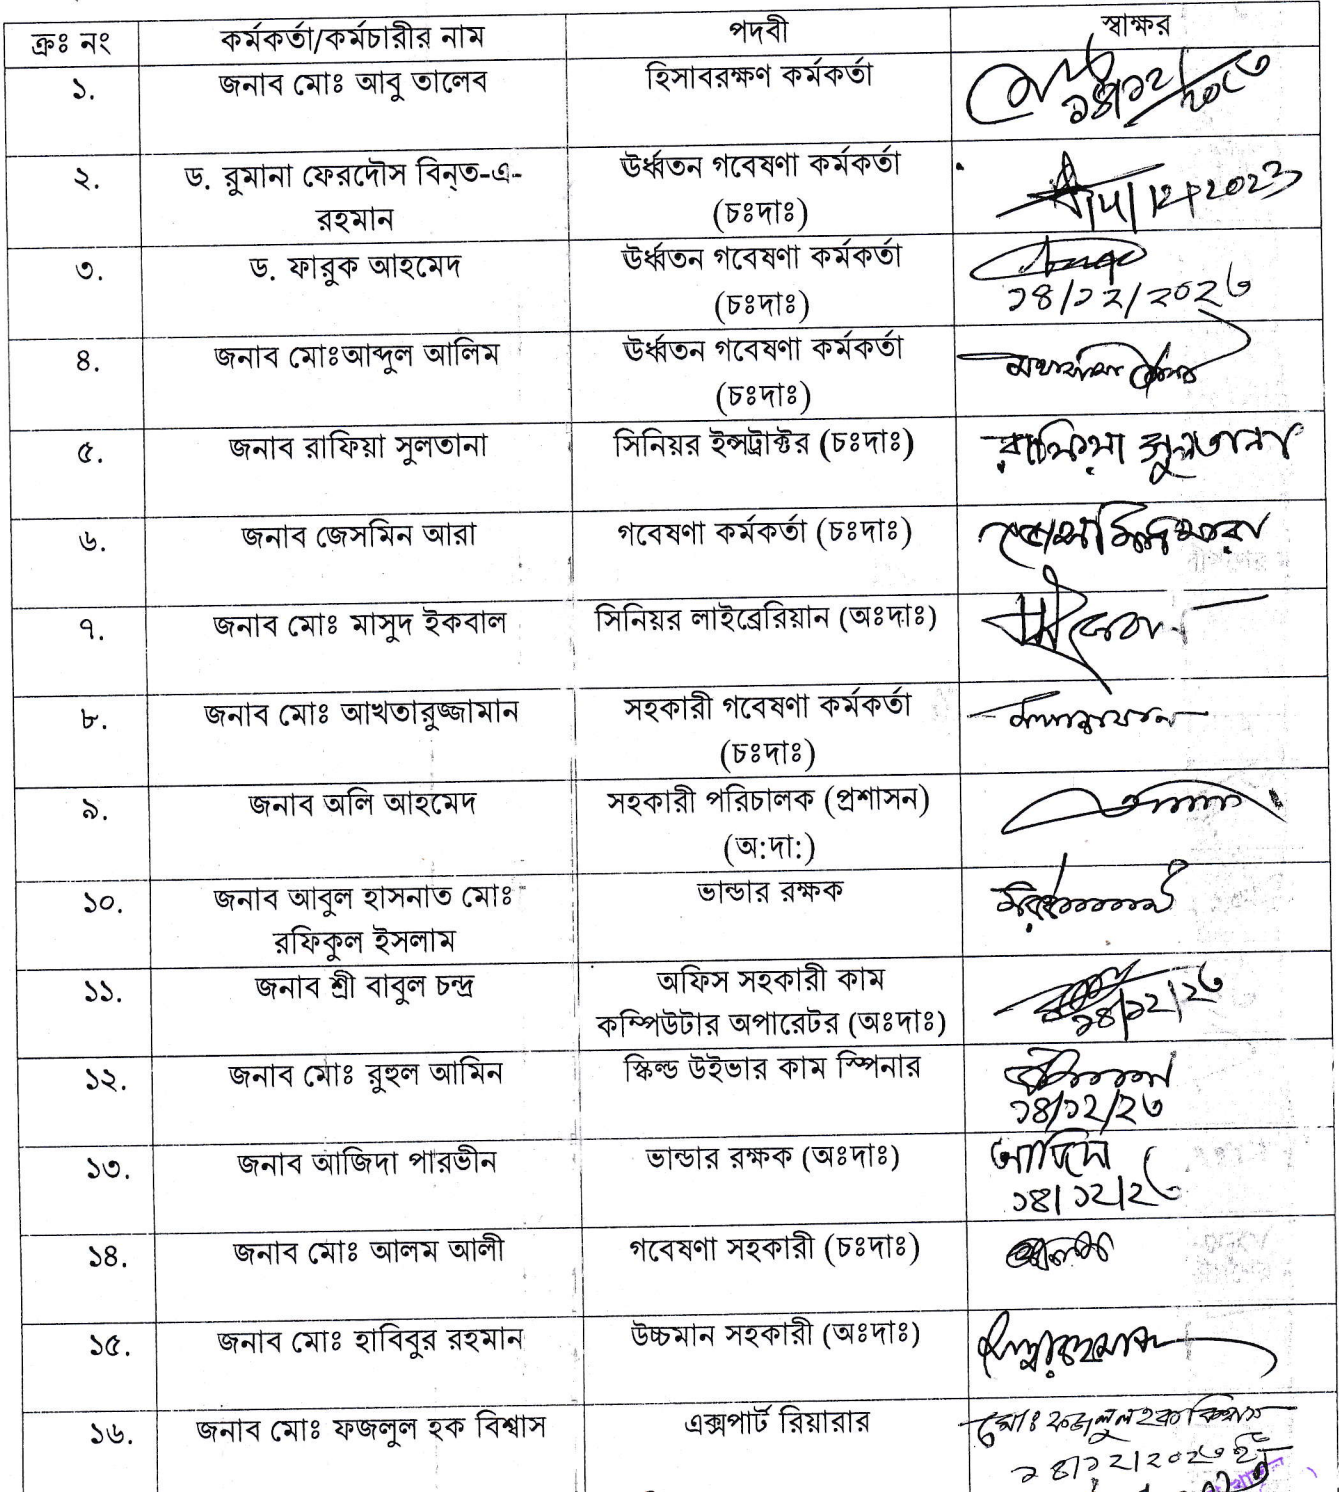 ক্রঃ নং কর্মকর্তা/কর্মচারীর নাম পদবী স্বাক্ষর
১. জনাব মোঃ আবু তালেব হিসাবরক্ষণ কর্মকর্তা
১৪/১২/২০২৩
২. ড. রুমানা ফেরদৌস বিন্‌ত-এ- ঊর্ধ্বতন গবেষণা কর্মকর্তা
রহমান (চঃদাঃ) 14/12/2023
৩. ড. ফারুক আহমেদ ঊর্ধ্বতন গবেষণা কর্মকর্তা
(চঃদাঃ) ১৪/১২/২০২৩
৪. জনাব মোঃআব্দুল আলিম ঊর্ধ্বতন গবেষণা কর্মকর্তা
(চঃদাঃ)
৫. জনাব রাফিয়া সুলতানা সিনিয়র ইন্সট্রাক্টর (চঃদাঃ) রাফিয়া সুলতানা
৬. জনাব জেসমিন আরা গবেষণা কর্মকর্তা (চঃদাঃ)
৭. জনাব মোঃ মাসুদ ইকবাল সিনিয়র লাইব্রেরিয়ান (অঃদাঃ)
৮. জনাব মোঃ আখতারুজ্জামান সহকারী গবেষণা কর্মকর্তা
(চঃদাঃ)
৯. জনাব অলি আহমেদ সহকারী পরিচালক (প্রশাসন)
(অ:দা:)
১০. জনাব আবুল হাসনাত মোঃ ভান্ডার রক্ষক
রফিকুল ইসলাম
১১. জনাব শ্রী বাবুল চন্দ্র অফিস সহকারী কাম
কম্পিউটার অপারেটর (অঃদাঃ) ১৪/১২/২৩
১২. জনাব মোঃ রুহুল আমিন স্কিল্ড উইভার কাম স্পিনার
১৪/১২/২৩
১৩. জনাব আজিদা পারভীন ভান্ডার রক্ষক (অঃদাঃ) আজিদা
১৪/১২/২৩
১৪. জনাব মোঃ আলম আলী গবেষণা সহকারী (চঃদাঃ) আলম
১৫. জনাব মোঃ হাবিবুর রহমান উচ্চমান সহকারী (অঃদাঃ)
১৬. জনাব মোঃ ফজলুল হক বিশ্বাস এক্সপার্ট রিয়ারার মোঃ ফজলুল হক বিশ্বাস
১৪/১২/২০২৩ ইং